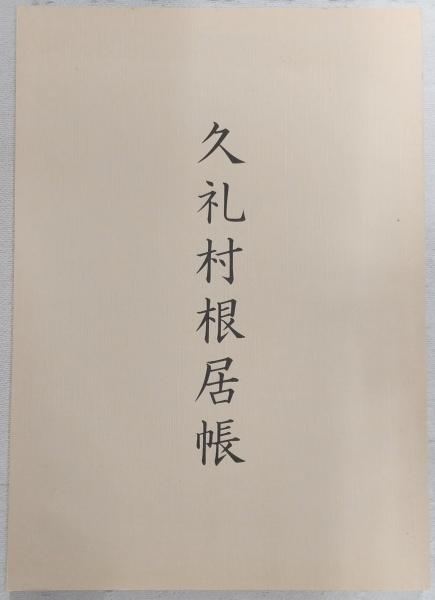 久礼村根居帳